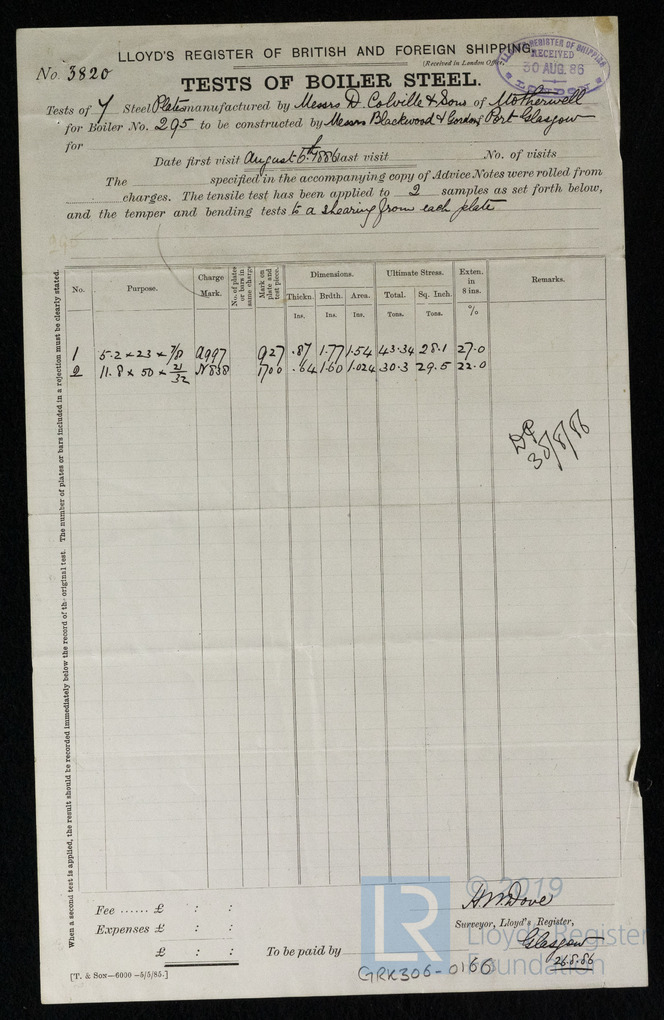 LLOYD'S REGISTER OF BRITISH AND FOREIGN SHIPPING.
No. 3820
(Received in London Of
LLOYD'S REGISTER OF SHIPPING
RECEIVED
30 AUG. 86
LONDON
TESTS OF BOILER STEEL.
Tests of 7 Steel Plates manufactured by Messrs D. Colville & Sons of Motherwell
for Boiler No. 295 to be constructed by Messrs Blackwood & Gordon, Port Glasgow
for
Date first visit August 5th 1886 last visit No. of visits
The specified in the accompanying copy of Advice Notes were rolled from
charges. The tensile test has been applied to 2 samples as set forth below,
and the temper and bending tests to a shearing from each plate
No. Purpose. Charge Mark. No. of plates or bars in same charge Mark on plate and test piece. Dimensions. Ultimate Stress. Exten. in 8 ins. Remarks.
Thickn. Brdth. Area. Total. Sq. Inch.
Ins. Ins. Ins. Tons. Tons. %
1 5.2 × 23 × 7/8 A997 927 .87 1.77 1.54 43.34 28.1 27.0
2 11.8 × 50 × 21/32 N838 1700 .64 1.60 1.024 30.3 29.5 22.0
30/8/86
When a second test is applied, the result should be recorded immediately below the record of the original test. The number of plates or bars included in a rejection must be clearly stated.
Fee ...... £ : :
Expenses £ : :
£ : :
To be paid by
H.W. Dove
Surveyor, Lloyd's Register,
Glasgow
26.8.86
[T. & SON—6000 -5/5/85.]
GRK306-0166
LR
© 2019
Lloyd's Register
Foundation